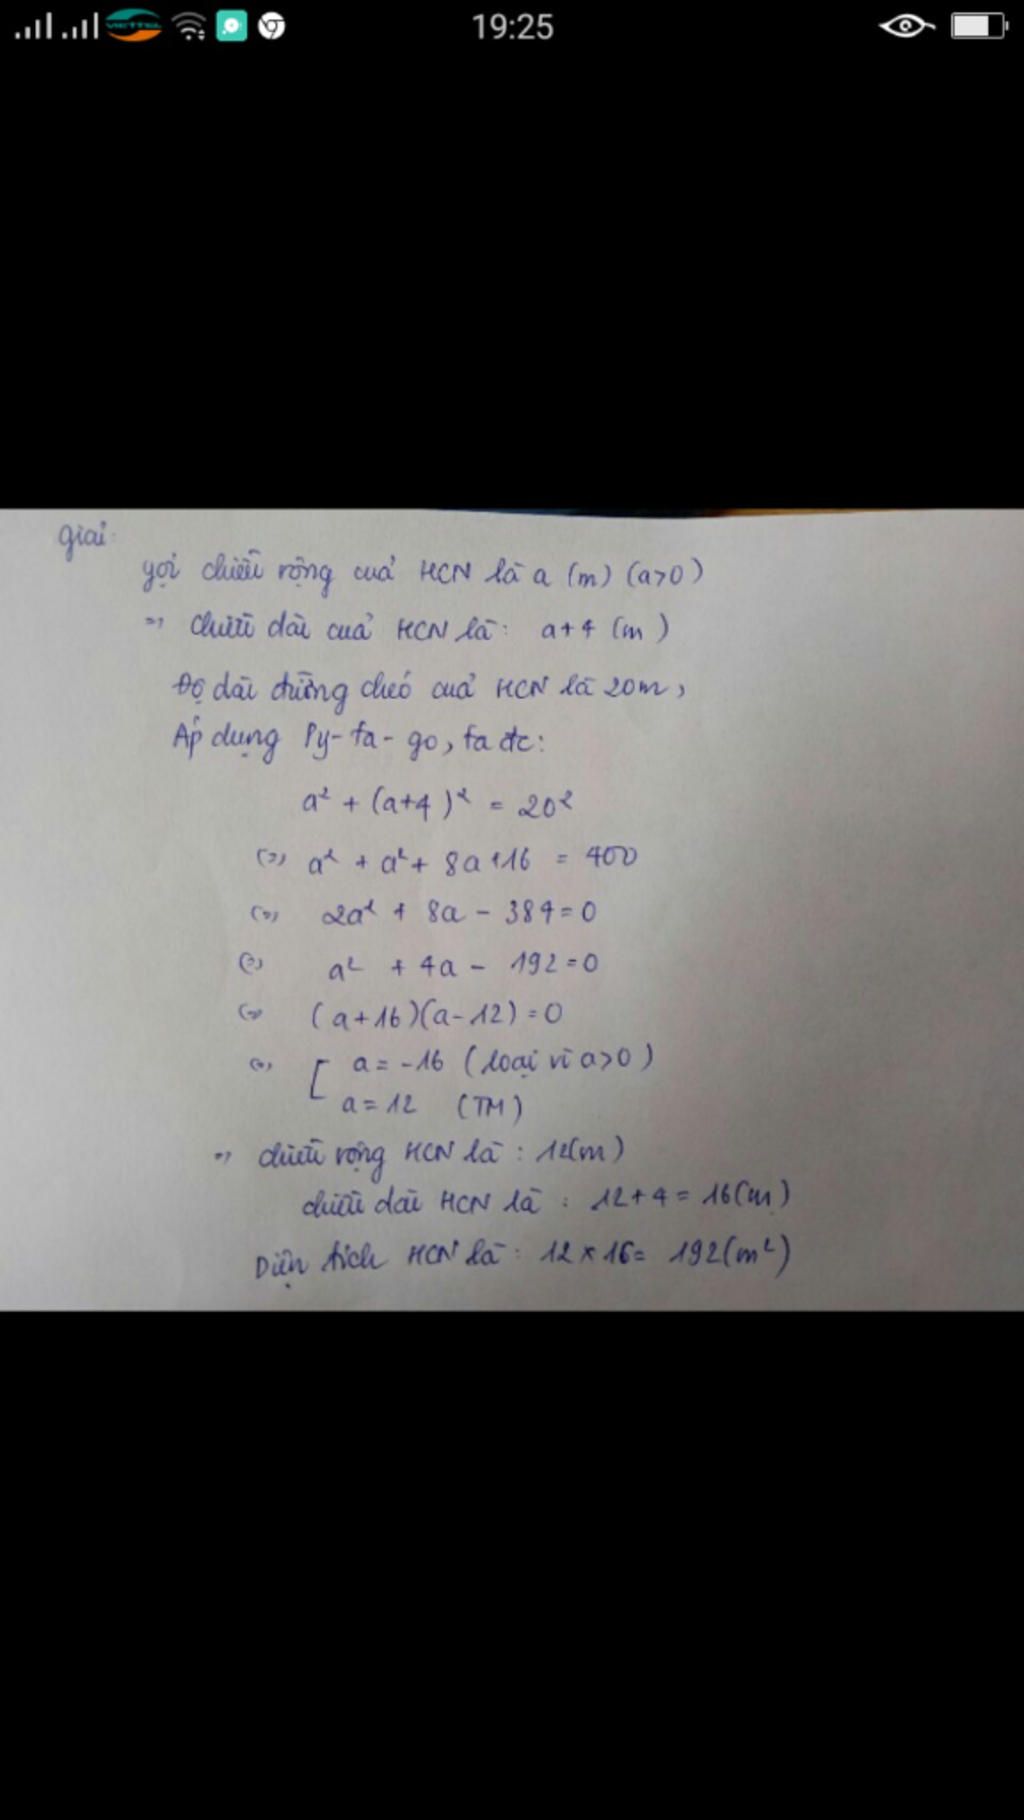 VIETTEL 19:25
Giải:
gọi chiều rộng cuả HCN là a (m) (a>0)
=> Chiều dài cuả HCN là: a+4 (m)
Độ dài đường chéo cuả HCN là 20m,
Áp dụng Py-ta-go, ta đc:
a² + (a+4)² = 20²
(=) a² + a² + 8a+16 = 400
(=) 2a² + 8a - 384=0
(=) a² + 4a - 192=0
(=) (a+16)(a-12)=0
(=) [ a=-16 (loại vì a>0)
a=12 (TM)
=> chiều rộng HCN là: 12(m)
chiều dài HCN là: 12+4=16(m)
Diện tích HCN là: 12×16= 192(m²)